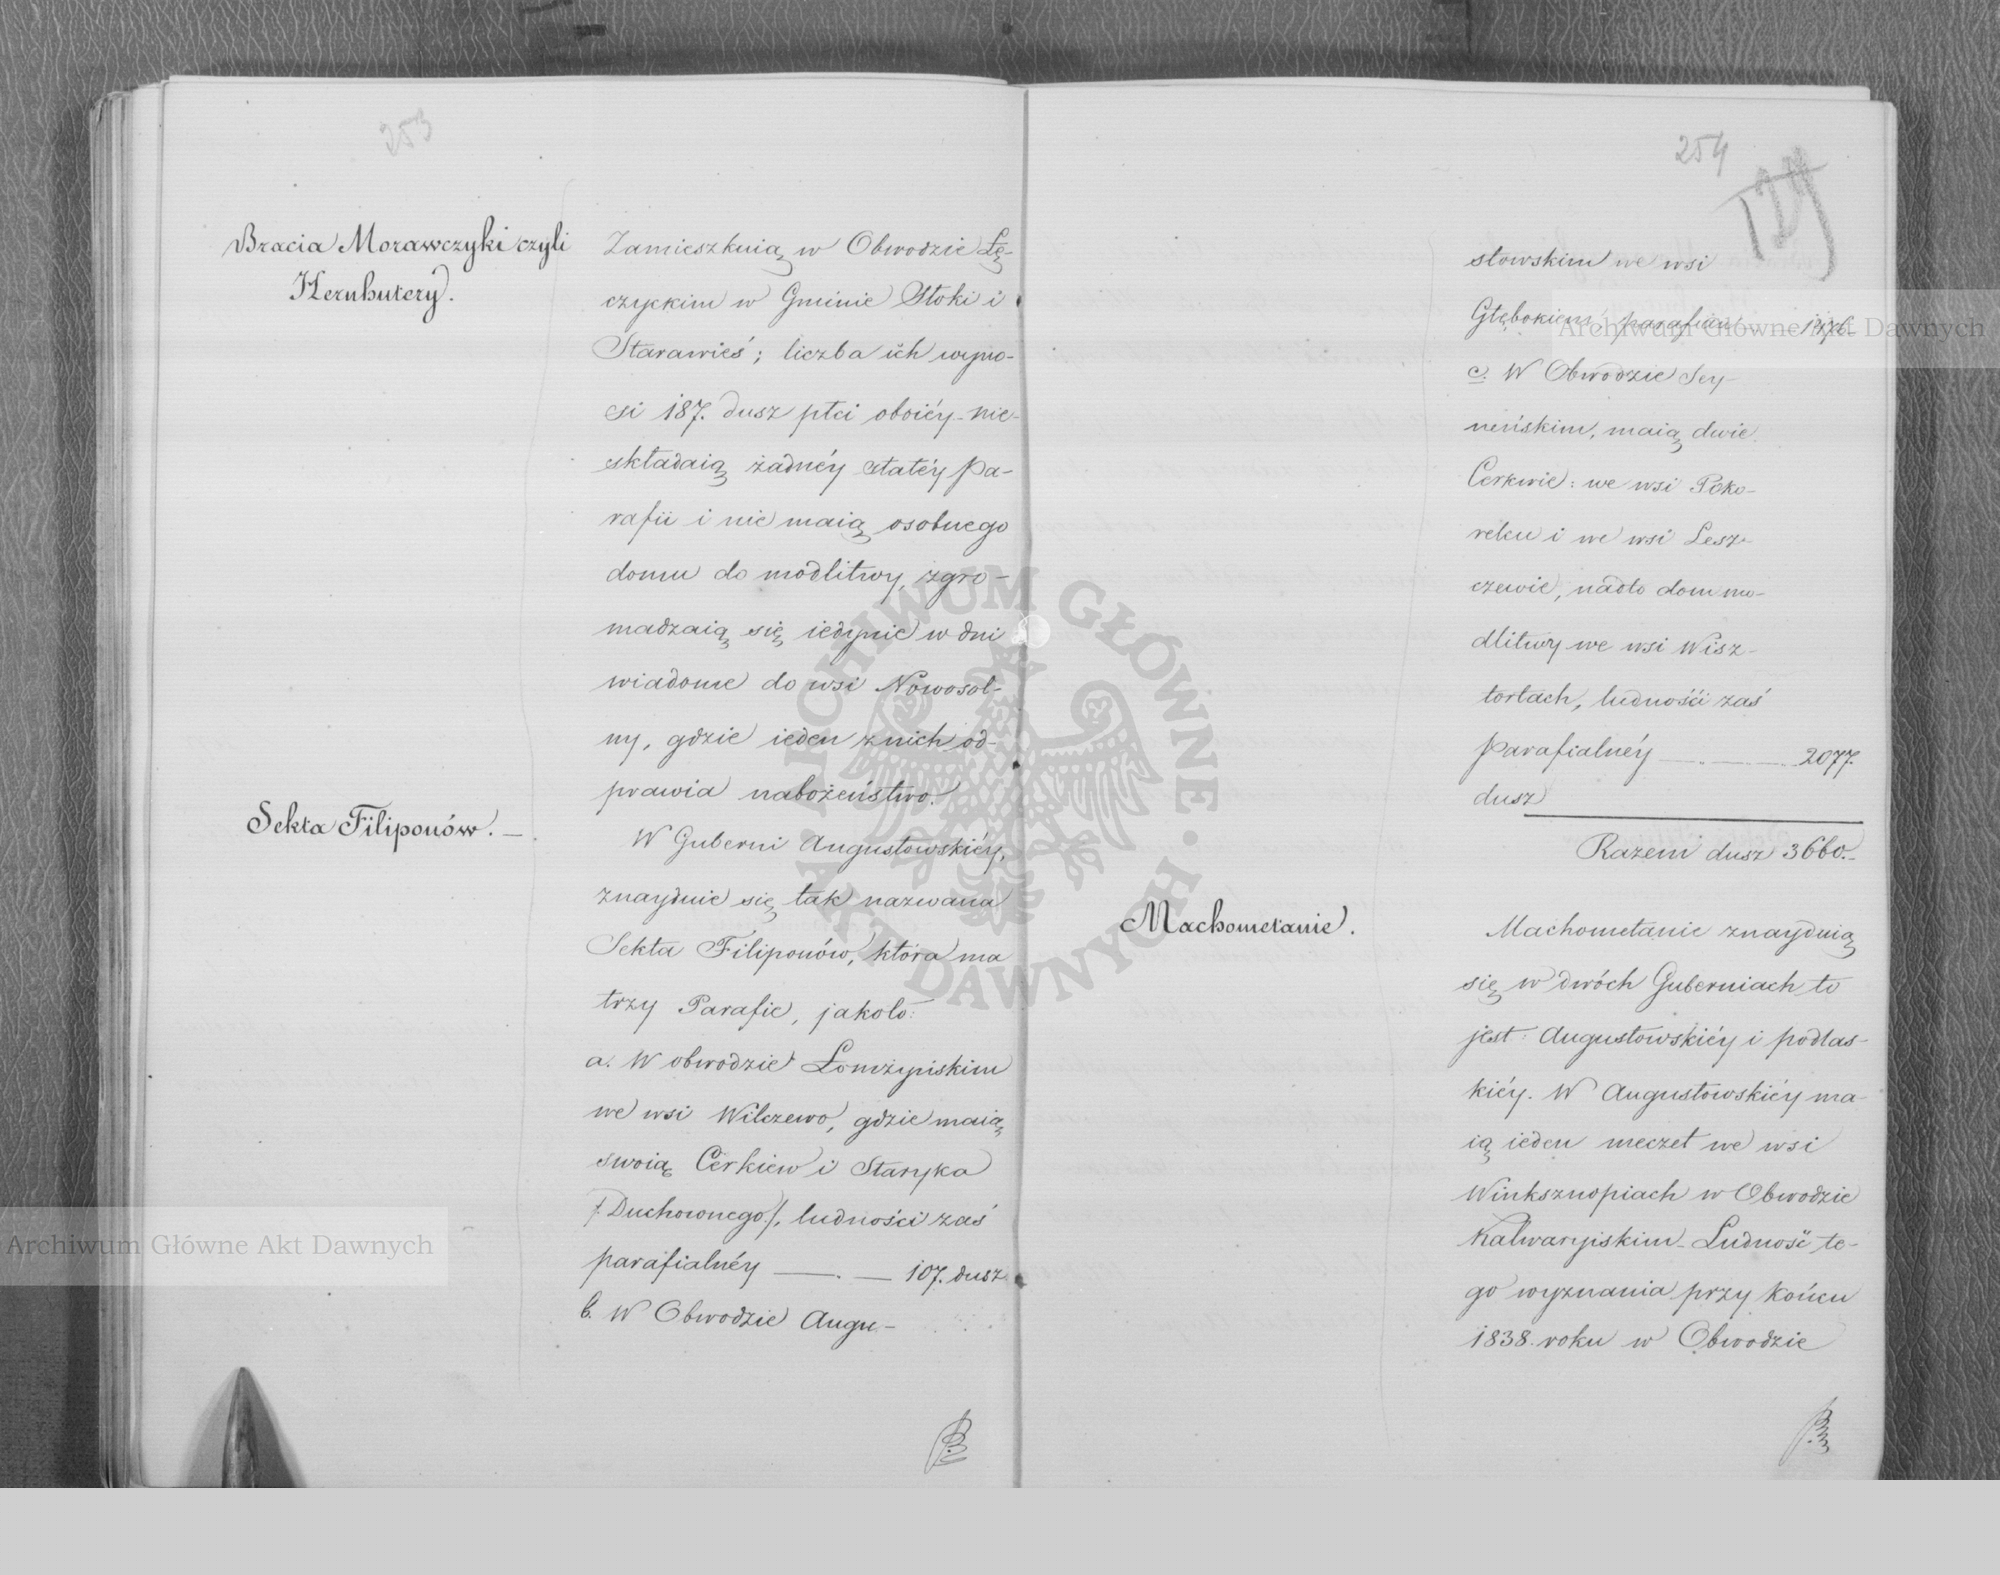 253
Bracia Morawczyki czyli
Hernhutery.
Zamieszkuią w Obwodzie Łę-
czyckim w Gminie Stoki i
Starawieś; liczba ich wyno-
si 187. dusz płci oboiéy - nie-
składaią żadnéy stałéy Pa-
rafii i nie maią osobnego
domu do modlitwy, zgro-
madzaią się iedynie w dni
wiadome do wsi Nowosol-
ny, gdzie ieden z nich od-
prawia nabożeństwo.
Sekta Filiponów. —
W Guberni Augustowskiéy,
znayduie się tak nazwana
Sekta Filiponów, która ma
trzy Parafie, jakoto:
a. W obwodzie Łomżyńskim
we wsi Wilczewo, gdzie maią
swoią Cerkiew i Staryka
/:Duchownego:/, ludności zaś
parafialnéy — . — 107. dusz
b. W Obwodzie Augu-
254
127
stowskim we wsi
Głębokiem, parafian
c. W Obwodzie Sey-
neńskim, maią dwie
Cerkwie: we wsi Poko-
reku i we wsi Lesz-
czewie, nadto dom mo-
dlitwy we wsi Wisz-
tortach, ludności zaś
Parafialnéy — . — . — 2077.
dusz
Razem dusz 3660. —
Machometanie.
Machometanie znayduią
się w dwóch Guberniach to
jest: Augustowskiéy i podlas-
kiéy. W Augustowskiéy ma-
ią ieden meczet we wsi
Winksznopiach w Obwodzie
Kalwaryiskim - Ludność te-
go wyznania przy końcu
1838. roku w Obwodzie
Archiwum Główne Akt Dawnych
Archiwum Główne Akt Dawnych
ARCHIWUM GŁÓWNE · AKT DAWNYCH ·